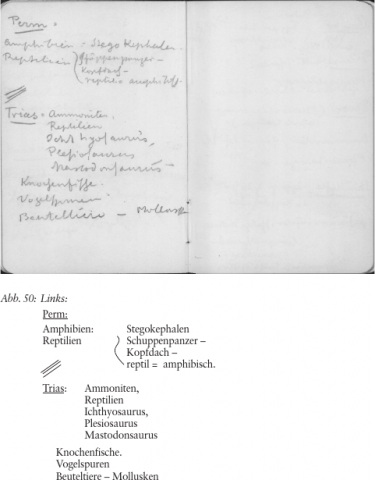 Perm:
Amphibien - Stegokephalen
Reptilien Schuppenpanzer -
Kopfdach -
reptil = amphibisch.
Trias: Ammoniten,
Reptilien
Ichthyosaurus,
Plesiosaurus
Mastodonsaurus
Knochenfische.
Vogelspuren
Beuteltiere – Mollusk
Abb. 50: Links:
Perm:
Amphibien: Stegokephalen
Reptilien Schuppenpanzer –
Kopfdach –
reptil = amphibisch.
Trias: Ammoniten,
Reptilien
Ichthyosaurus,
Plesiosaurus
Mastodonsaurus
Knochenfische.
Vogelspuren
Beuteltiere – Mollusken